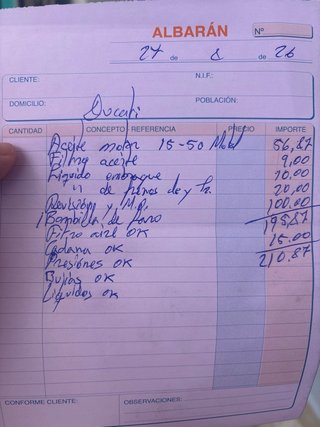 ALBARÁN Nº
27 de 8 de 26
CLIENTE: N.I.F.:
DOMICILIO: Ducati POBLACIÓN:
CANTIDAD CONCEPTO - REFERENCIA PRECIO IMPORTE
Aceite motor 15-50 Motul 56,87
Filtro aceite 9,00
Líquido embrague 10,00
" de frenos de y tr. 20,00
Revisión y M.O. 100,00
1 Bombilla de faro 195,87
Filtro aire OK 15.00
Cadena OK 210.87
Presiones OK
Bujías OK
Líquidos OK
CONFORME CLIENTE: OBSERVACIONES: